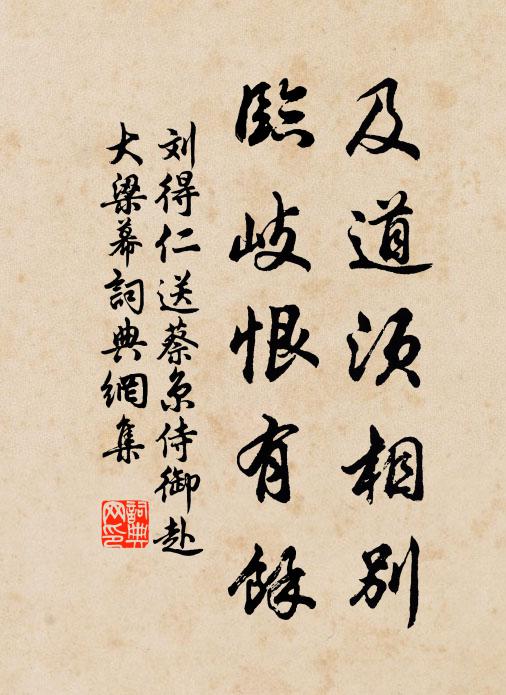 及道须相别
臨歧恨有餘
刘得仁送蔡京侍御赴
大梁幕詞典網集
詞典
网印